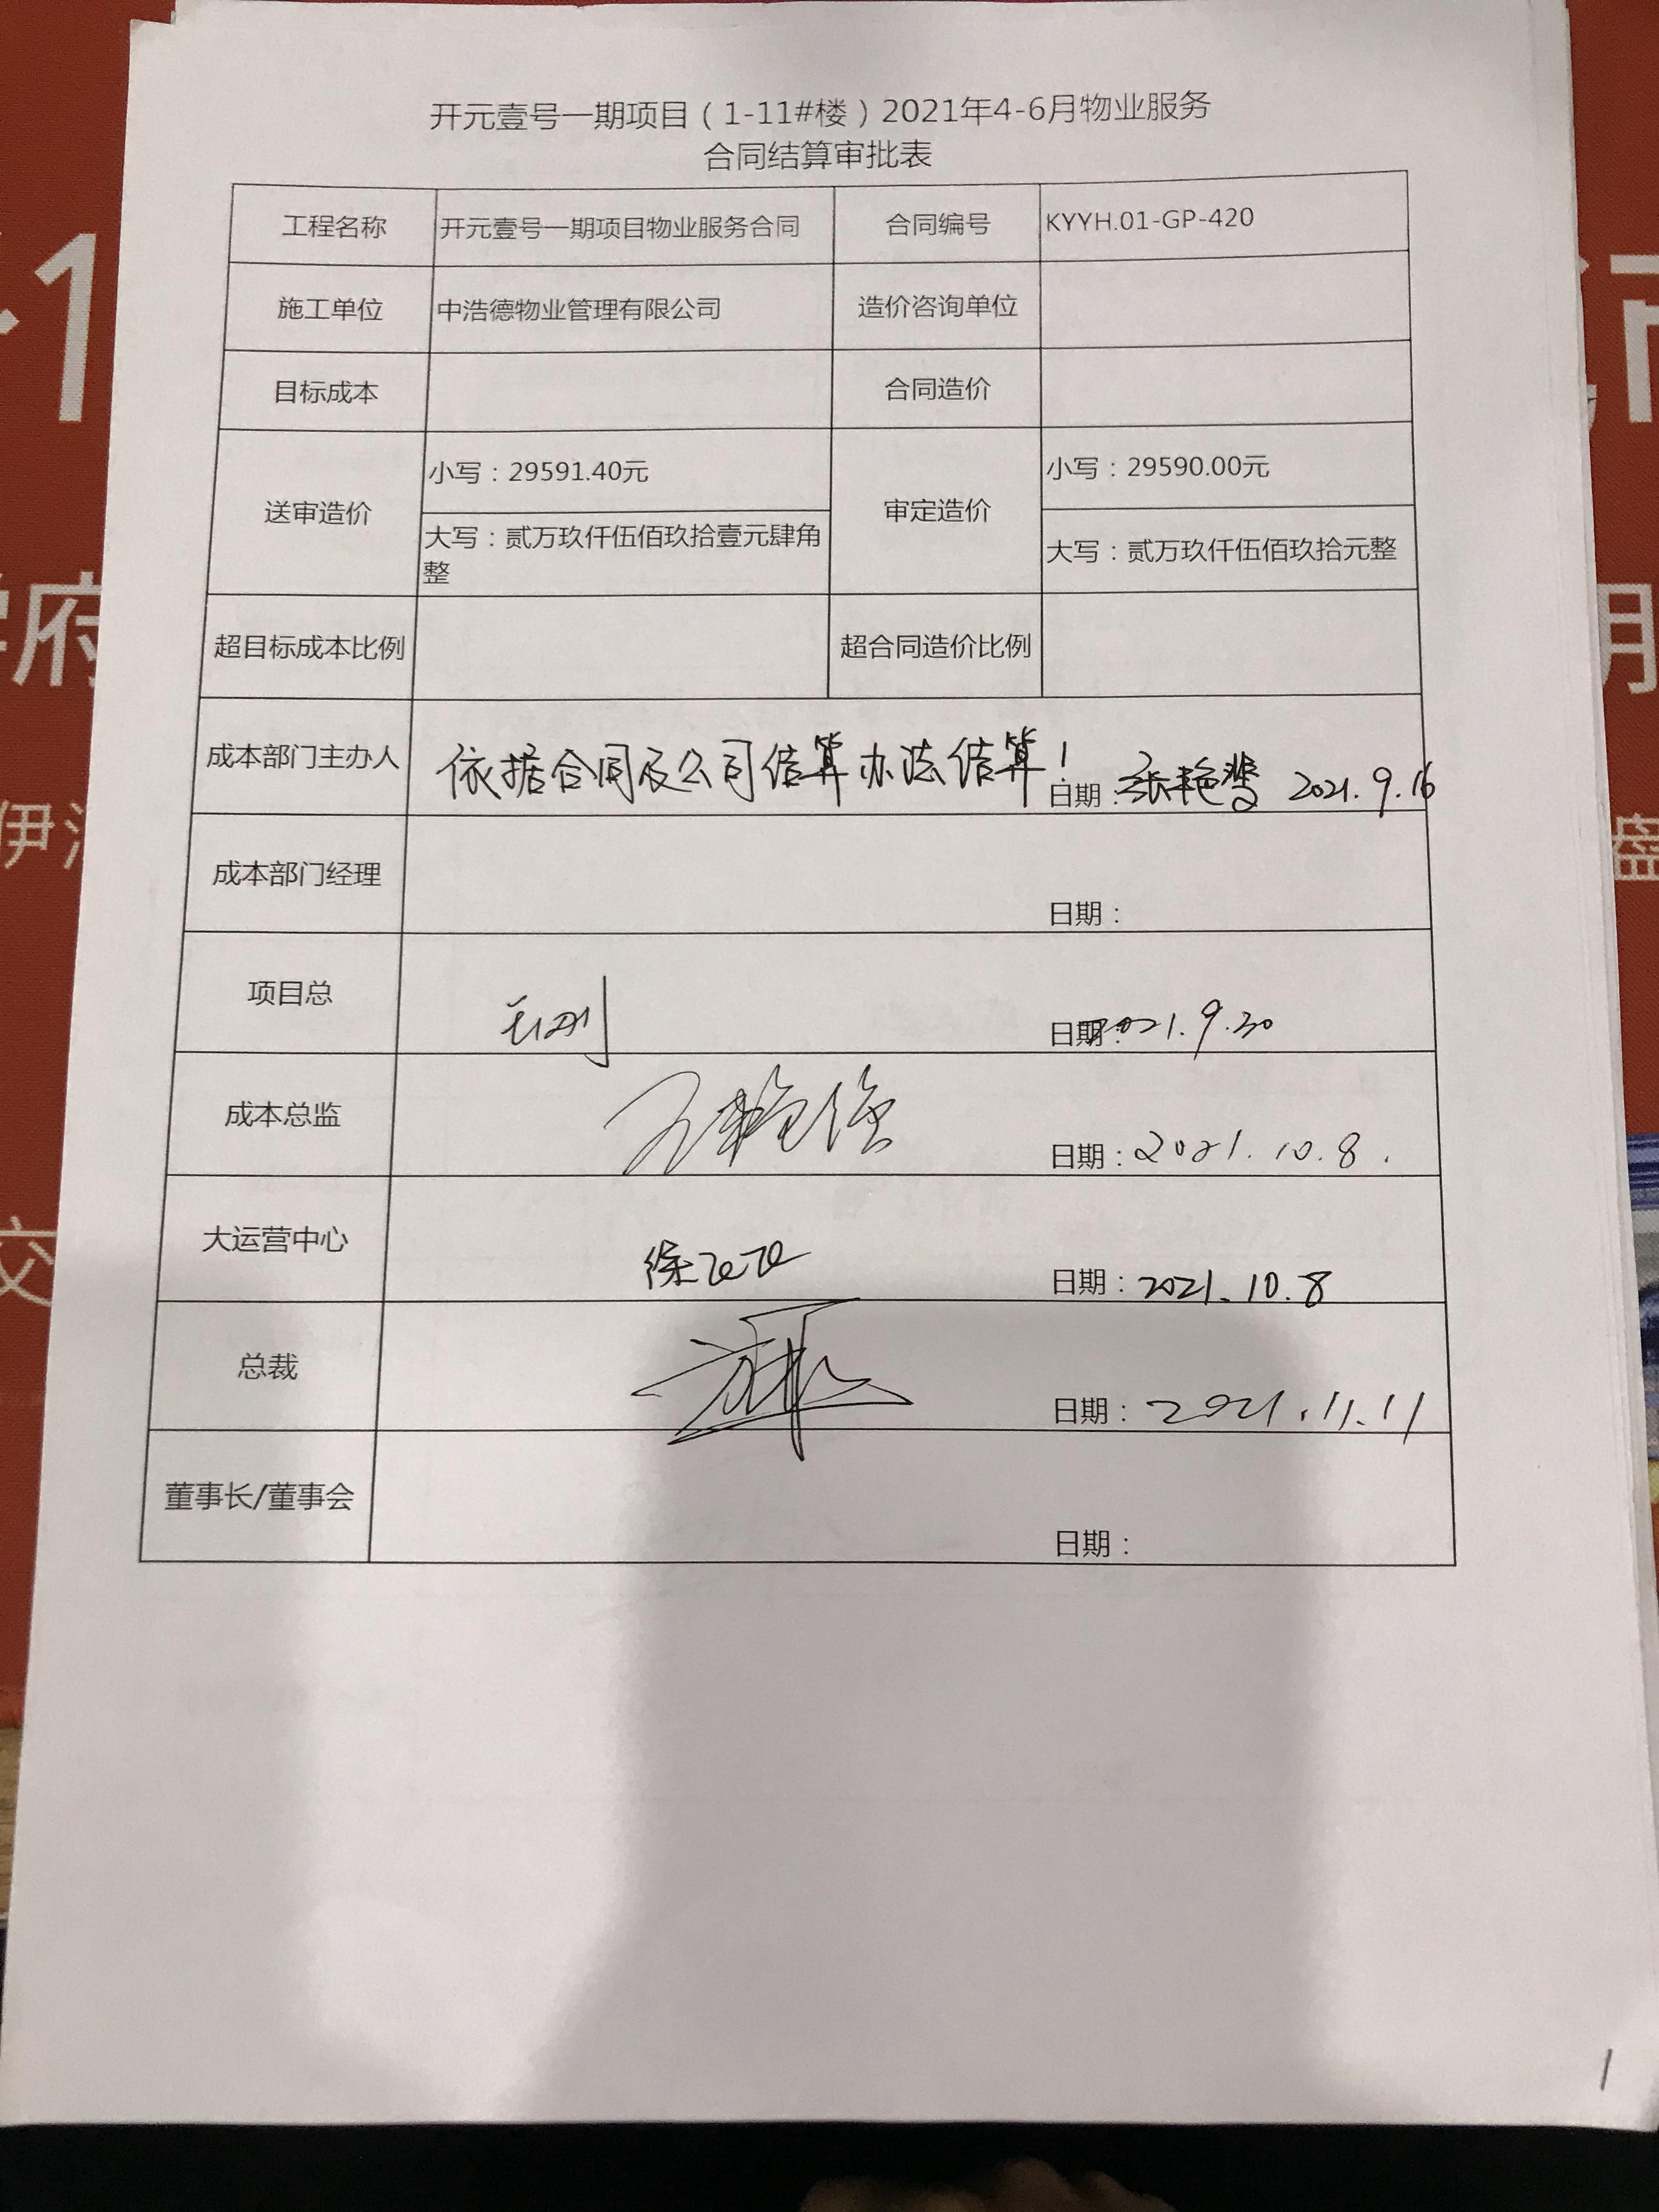 开元壹号一期项目（1-11#楼）2021年4-6月物业服务
合同结算审批表
工程名称 开元壹号一期项目物业服务合同 合同编号 KYYH.01-GP-420
施工单位 中浩德物业管理有限公司 造价咨询单位
目标成本 合同造价
送审造价 小写：29591.40元 审定造价 小写：29590.00元
大写：贰万玖仟伍佰玖拾壹元肆角
整
大写：贰万玖仟伍佰玖拾元整
超目标成本比例 超合同造价比例
成本部门主办人 依据合同及公司结算办法结算！
日期：张艳 2021.9.16
成本部门经理
日期：
项目总
日期：2021.9.30
成本总监
日期：2021.10.8.
大运营中心 徐
日期：2021.10.8
总裁
日期：2021.11.11
董事长/董事会
日期：
1
1
学府
伊
交
市
月
盘